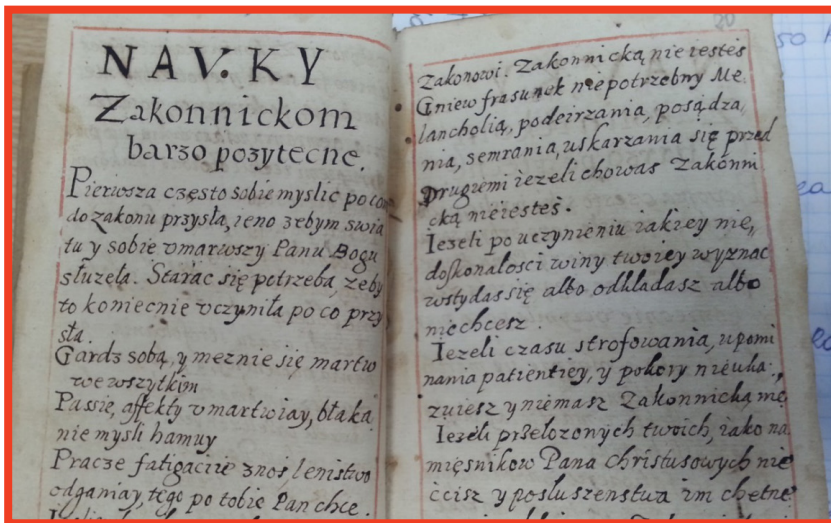 NAV.KY
Zakonnickom
barzo pozytecne.
Pierwsza często sobie myslic po co
do zakonu przysła, ieno zebym swia
tu y sobie vmarwszy Panu Bogu
słuzeła. Starac się potrzeba, zeby
to koniecnie vczyniła po co przy
sła.
Gardz sobą, y meznie się martw
we wszytkim
Passie, affekty vmartwiay, błąka
nie mysli hamuy
Pracze fatigaciie znoś, lenistwo
odganiay, tego po tobie Pan chce.
20
Zakonowi. Zakonnicką nie iesteś
Gniew frasunek niepotrzebny Me
lancholią, podeirzania, posądza,
nia, semrania, uskarzania się przed
Drugiemi iezeli chowas Zakonni
cką nieiesteś.
Iezeli po uczynieniu iakiey nie,
doskonalosci winy twoiey wyznac
wstydas się albo odkładasz albo
niechcesz.
Iezeli czasu strofowania, upomi
nania patientiey, y pokory nieuka:
zuiesz y niemasz Zakonnicką
Iezeli przełozonych twoich, iako na
mięsnikow Pana Christusowych nie
ccisz y posłuszenstwa im chetne